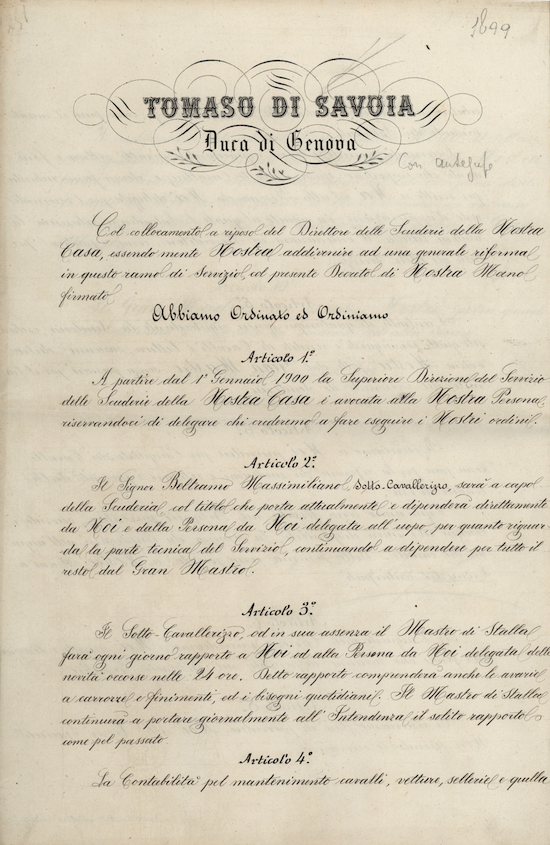 1899
TOMASO DI SAVOIA
Duca di Genova
Con autografo
Col collocamento a riposo del Direttore delle Scuderie della Nostra
Casa, essendo mente Nostra addivenire ad una generale riforma
in questo ramo di Servizio, col presente Decreto di Nostra Mano
firmato
Abbiamo Ordinato ed Ordiniamo
Articolo 1.º
A partire dal 1º Gennaio 1900 la Superiore Direzione del Servizio
delle Scuderie della Nostra Casa è avocata alla Nostra Persona,
riservandoci di delegare chi crederemo a fare eseguire i Nostri ordini.
Articolo 2.º
Il Signor Beltramo Massimiliano, Sotto-Cavallerizzo, sarà a capo
della Scuderia, col titolo che porta attualmente e dipenderà direttamente
da Noi e dalla Persona da Noi delegata all'uopo, per quanto riguar-
da la parte tecnica del Servizio, continuando a dipendere per tutto il
resto dal Gran Mastro.
Articolo 3.º
Il Sotto-Cavallerizzo, od in sua assenza il Mastro di Stalla
farà ogni giorno rapporto a Noi ed alla Persona da Noi delegata delle
novità occorse nelle 24 ore. Detto rapporto comprenderà anche le avarie
a carrozze e finimenti, ed i bisogni quotidiani. Il Mastro di Stalla
continuerà a portare giornalmente all'Intendenza il solito rapporto
come pel passato.
Articolo 4.º
La Contabilità pel mantenimento cavalli, vetture, sellerie e quella